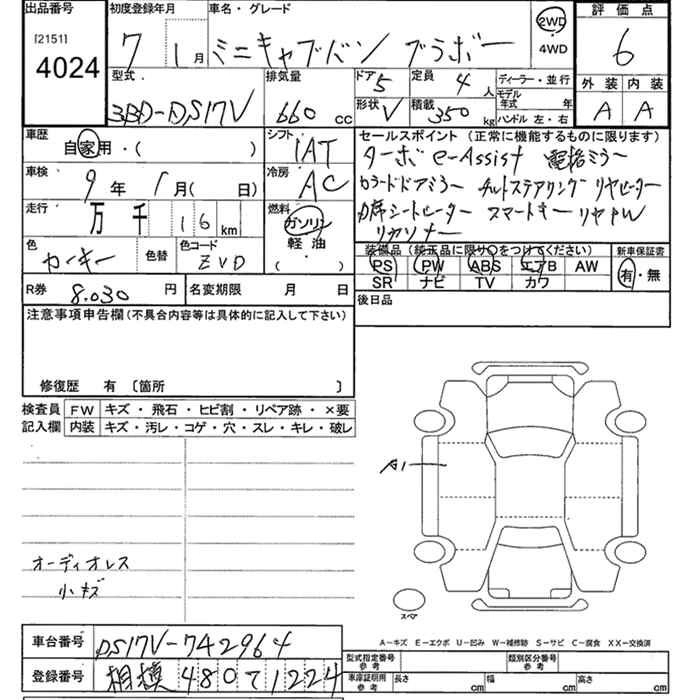 出品番号
[2151]
4024
初度登録年月
7 1月
車名・グレード
ミニキャブバン ブラボー
2WD
・
4WD
評価点
6
外装 内装
A A
型式
3BD-DS17V
排気量
660 cc
ドア 5
定員 4人
形状 V
積載 350 kg
ディーラー・並行
モデル
年式 年
ハンドル 左・右
車歴
自家用・( )
シフト
IAT
車検
9年 1月( 日)
冷房
AC
走行
万 千 16 km
燃料
ガソリン
軽油
( )
色
カーキー
色替
色コード
ZVD
R券 8.030 円
名変期限 月 日
セールスポイント (正常に機能するものに限ります)
ターボ e-Assist 電格ミラー
カラードドアミラー チルトステアリング リヤヒーター
前席シートヒーター スマートキー リヤPW
リヤソナー
装備品 (純正品に限り○をつけてください)
PS PW ABS エアB AW
SR ナビ TV カワ
新車保証書
有・無
後日品
注意事項申告欄(不具合内容等は具体的に記入して下さい)
修復歴 有 〔箇所 〕
検査員
記入欄
FW キズ・飛石・ヒビ割・リペア跡・×要
内装 キズ・汚レ・コゲ・穴・スレ・キレ・破レ
オーディオレス
小キズ
A1
スペア
A-キズ E-エクボ U-凹み W-補修跡 S-サビ C-腐食 XX-交換済
車台番号 DS17V-742964
登録番号 相模 480 て 1224
型式指定番号
参考
類別区分番号
参考
車庫証明用
参考
長さ cm 幅 cm 高さ cm